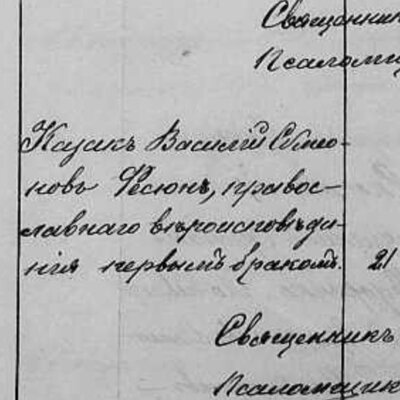 Священник
Псаломщ
Казакъ Василій Симо-
новъ Фесюнъ, право-
славнаго вѣроисповѣда-
нія первымъ бракомъ. 21
Священникъ
Псаломщик